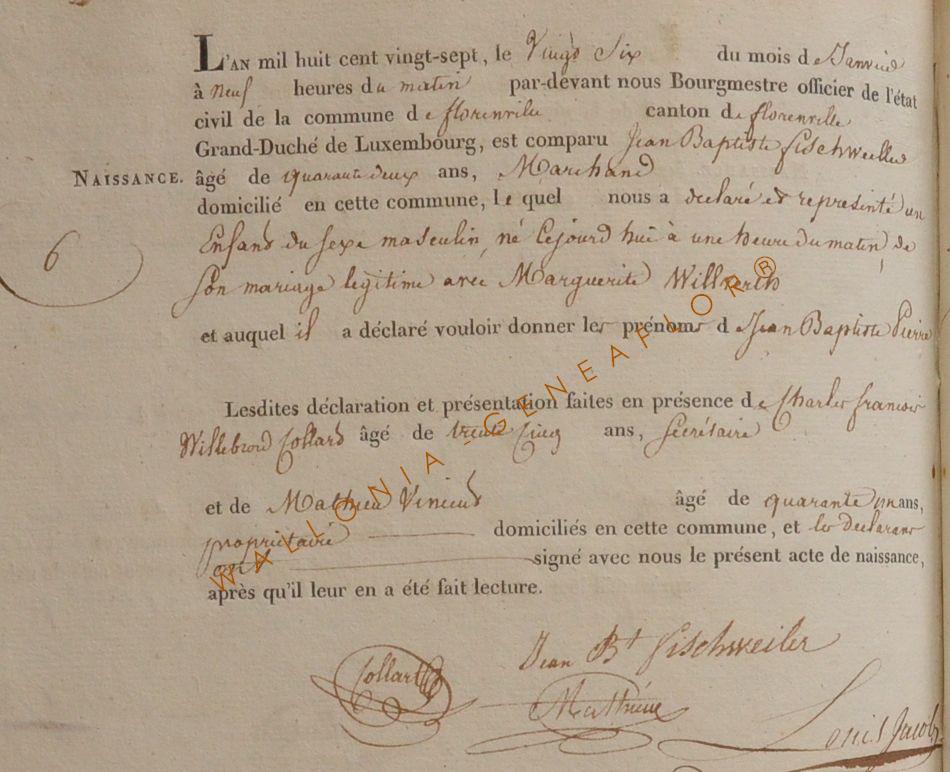 L'AN mil huit cent vingt-sept, le Vingt Six du mois de Janvier
à neuf heures du matin par-devant nous Bourgmestre officier de l'état
civil de la commune de florenville canton de florenville
Grand-Duché de Luxembourg, est comparu Jean Baptiste fischweiller
NAISSANCE. âgé de quarante deux ans, Marchand
domicilié en cette commune, le quel nous a declaré et representé un
6 Enfant du sexe masculin, né Cejourd'hui à une heure du matin de
son mariage legitime avec Marguerite Willwerth
et auquel il a déclaré vouloir donner les prénoms de Jean Baptiste Pierre
Lesdites déclaration et présentation faites en présence de Charles francois
Willebrord Collard âgé de trente Cinq ans, secrétaire
et de Mathieu âgé de quarante un ans,
propriétaire domiciliés en cette commune, et les declarans
ont signé avec nous le présent acte de naissance,
après qu'il leur en a été fait lecture.
Jean Bt fischweiler
Collard
Mathieu
Louis Jacob
WALLONIA - GENEAFLOR ®